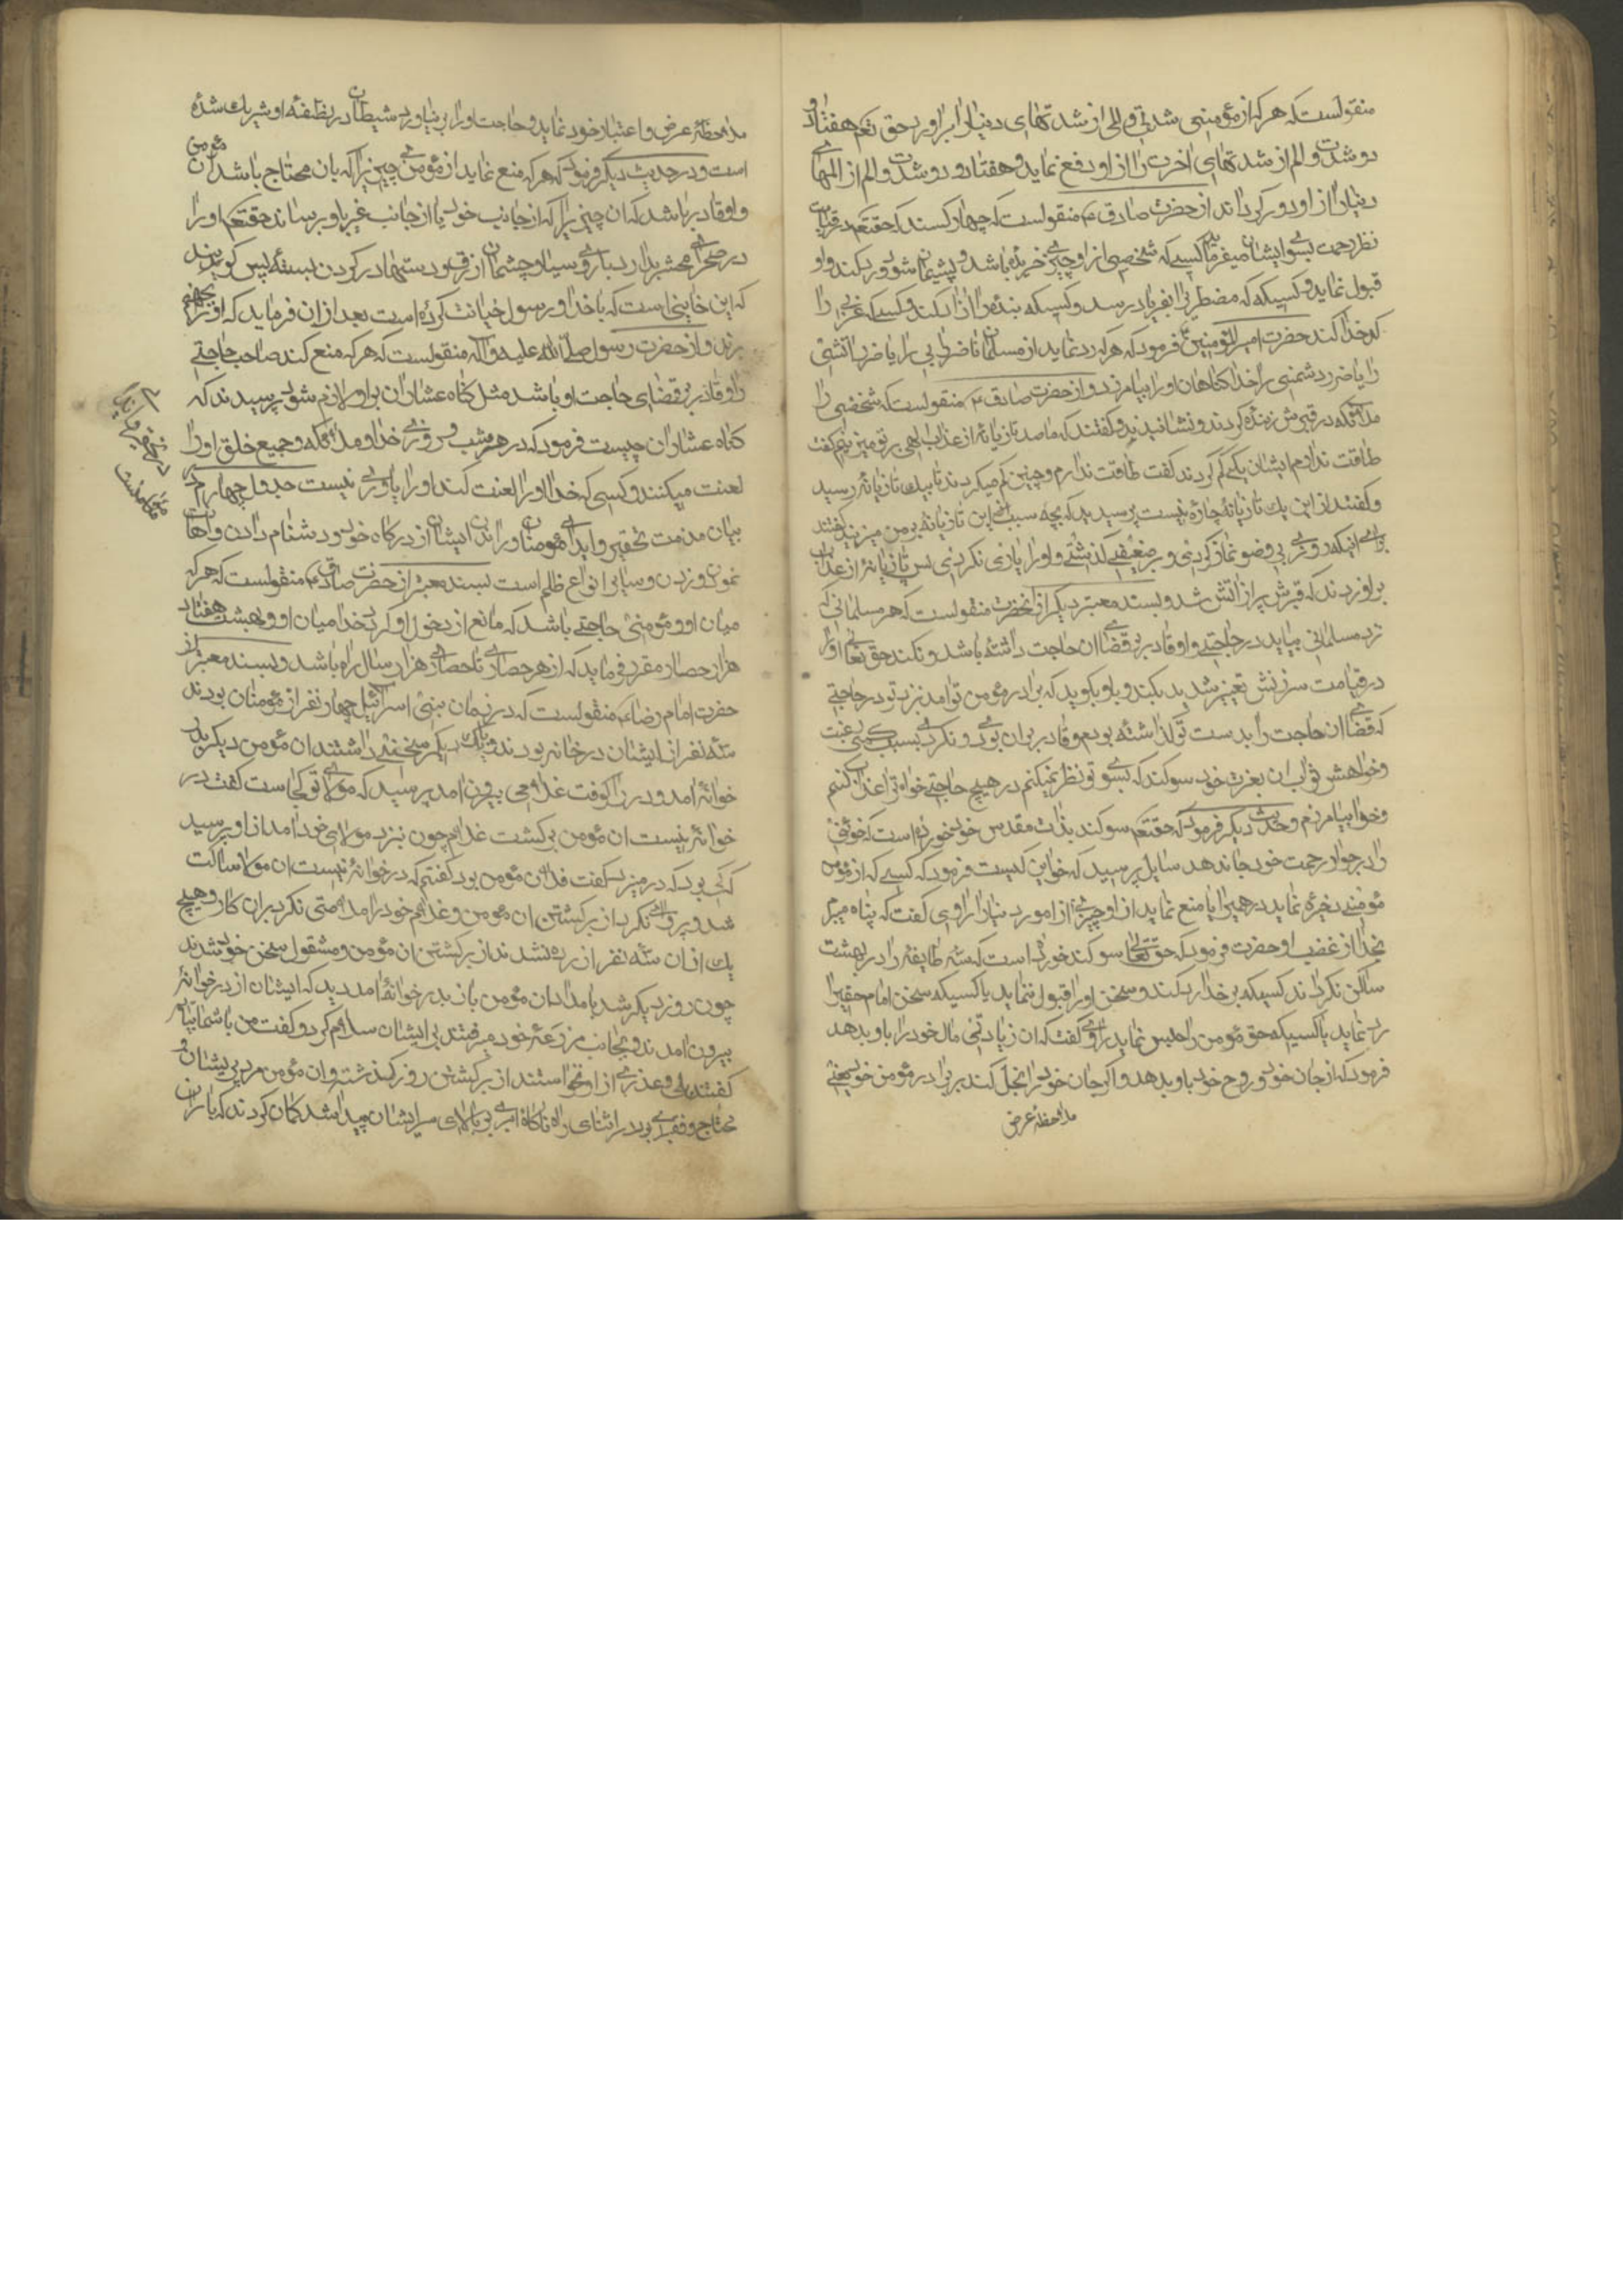 منقولست که هر که از مؤمنی شدتی و المی از شدتهای دنیا را برآورد حق تعم هفتاد و
دو شدت و الم از شدتهای اخرت را از او دفع نماید و هفتاد و دو شدت و الم از المهای
دنیا را از او دور کرداند از حضرت صادق ع منقولست که چهار کسند که حقتعم در قیامت
نظر رحمت بسوی ایشان میفرماید کسی که شخصی از او چیزی خریده باشد و پشیمان شود و رد کند و او
قبول نماید و کسیکه که مضطری را بفریاد رسد و کسیکه بنده را ازاد کند و کسیکه عزبی را
کدخدا کند حضرت امیر المؤمنین ع فرمود که هر که رد نماید از مسلمانان ضرر ابی را یا ضرر اتشی
را یا ضرر دشمنی را خدا کناهان او را بیامرزد و از حضرت صادق ع منقولست که شخصی را
ملائکه در قبرش زنده کردند و نشانیدند و کفتند که ما صد تازیانه از عذاب الهی بر تو میزنیم کفت
طاقت ندارم ایشان یکی کم کردند کفت طاقت ندارم و چنین کم میکردند تا بیک تازیانه رسید
و کفتند از این یک تازیانه چاره نیست پرسید که بچه سبب این تازیانه بر من میزنید کفتند
برای انیکه روزی بی وضو نماز کردی و بر ضعیفی کذشتی و او را یاری نکردی پس تازیانه از عذاب
براو زدند که قبرش پر از اتش شد و بسند معتبر دیکر از انحضرت منقولست که هر مسلمانی که
نزد مسلمانی بیاید در حاجتی و او قادر بر قضای ان حاجت داشته باشد و نکند حق تعالی او را
در قیامت سرزنش و تعییر شدید بکند و باو بکوید که برادر مؤمن تو امد نزد تو در حاجتی
که قضای ان حاجت را بدست تو کذاشته بودم و قادر بر ان بودی و نکردی بسبب کمی رغبت
و خواهش ثواب ان بعزت خود سوکند که بسوی تو نظر نمیکنم در هیچ حاجتی خواه ترا عذاب کنم
و خواه بیامرزم و حدیث دیکر فرمود که حقتعم سوکند بذات مقدس خود خورده است که خوئنی
را در جوار رحمت خود جا ندهد سایل پرسید که خواین کیست فرمود که کسی که از مؤمن
مؤمنی ذخیره نماید درهمی را یا منع نماید از او چیزی از امور دنیا را راوی کفت که پناه میبرم
بخدا از غضب او حضرت فرمود که حق تعالی سوکند خورده است که سه طایفه را در بهشت
ساکن نکرداند کسیکه بر خدا رد کند و سخن او را قبول ننماید یا کسیکه سخن امام حق را
رد نماید یا کسیکه حق مؤمن را حبس نماید راوی کفت که ان زیادتی مال خود را باو بدهد
فرمود که از جان خود و روح خود باو بدهد و اکر جان خود را بخل کند بر برادر مؤمن خود بجهت
ملاحظه عرض
ملاحظه عرض و اعتبار خود نماید و حاجت او را بر نیاورد شیطان در نطفه او شریک شده
است و در حدیث دیکر فرمود که هر که منع نماید از مؤمنی چیزی را که بان محتاج باشد ان مؤمن
و او قادر باشد که ان چیز را که از جانب خود یا از جانب غیر باو برساند حقتعم او را
در صحرای محشر بدارد با روی سیاه و چشمان ازرق و دستها در کردن بسته پس کویند
که این خاینی است که با خدا و رسول خیانت کرده است بعد از ان فرماید که او را بجهنم
برند و از حضرت رسول صلی الله علیه و آله منقولست که هر که منع کند صاحب حاجتی
را و قادر بر قضای حاجت او باشد مثل کناه عشاران بر او لازم شود پرسیدند که
کناه عشاران چیست فرمود که در هر شب و روزی خدا و ملائکه و جمیع خلق او را
لعنت میکنند و کسی که خدا او را لعنت کند او را یاوری نیست جدول چهارم در
بیان مذمت تحقیر و ایذای مؤمنان و راندن ایشان از درکاه خود و دشنام دادن و اهانت
نمودن و زدن و سایر انواع ظلم است بسند معتبر از حضرت صادق ع منقولست که هر که
میان او و مؤمنی حاجتی باشد که مانع از دخول او کردد خدا میان او و بهشت هفتاد
هزار حصار مقرر فرماید که از هر حصاری تا حصاری هزار سال راه باشد و بسند معتبر از
حضرت امام رضا ع منقولست که در زمان بنی اسرائیل چهار نفر از مؤمنان بودند
سه نفر از ایشان در خانه بودند و با یکدیکر سخنی داشتند ان مؤمن دیکر بدر
خوانه امد و در را کوفت غلامی بیرون امد پرسید که مولای تو کجاست کفت در
خوانه نیست ان مؤمن بر کشت غلام چون نبزد مولای خود امد از او پرسید
که کی بود که در میزد کفت فلان مؤمن بود کفتم که در خوانه نیست ان مولا ساکت
شد و پروای نکرد از برکشتن ان مؤمن و غلام خود را ملامتی نکرد بر ان کار و هیچ
یک از ان سه نفر ازرده نشدند از برکشتن ان مؤمن و مشقول سخن خود شدند
چون روز دیکر شد بامدادان مؤمن باز بدر خوانه امد دید که ایشان از در خوانه
بیرون امدند و بجانب مزرعه خود میرفتند بر ایشان سلام کرد و کفت من با شما بیایم
کفتند بلی و عذری از او نخواستند از برکشتن روز کذشته و ان مؤمن مرد پریشان و
محتاج و فقیری بود در اثنای راه ناکاه ابری بر بالای سر ایشان پیدا شد کمان کردند که باران